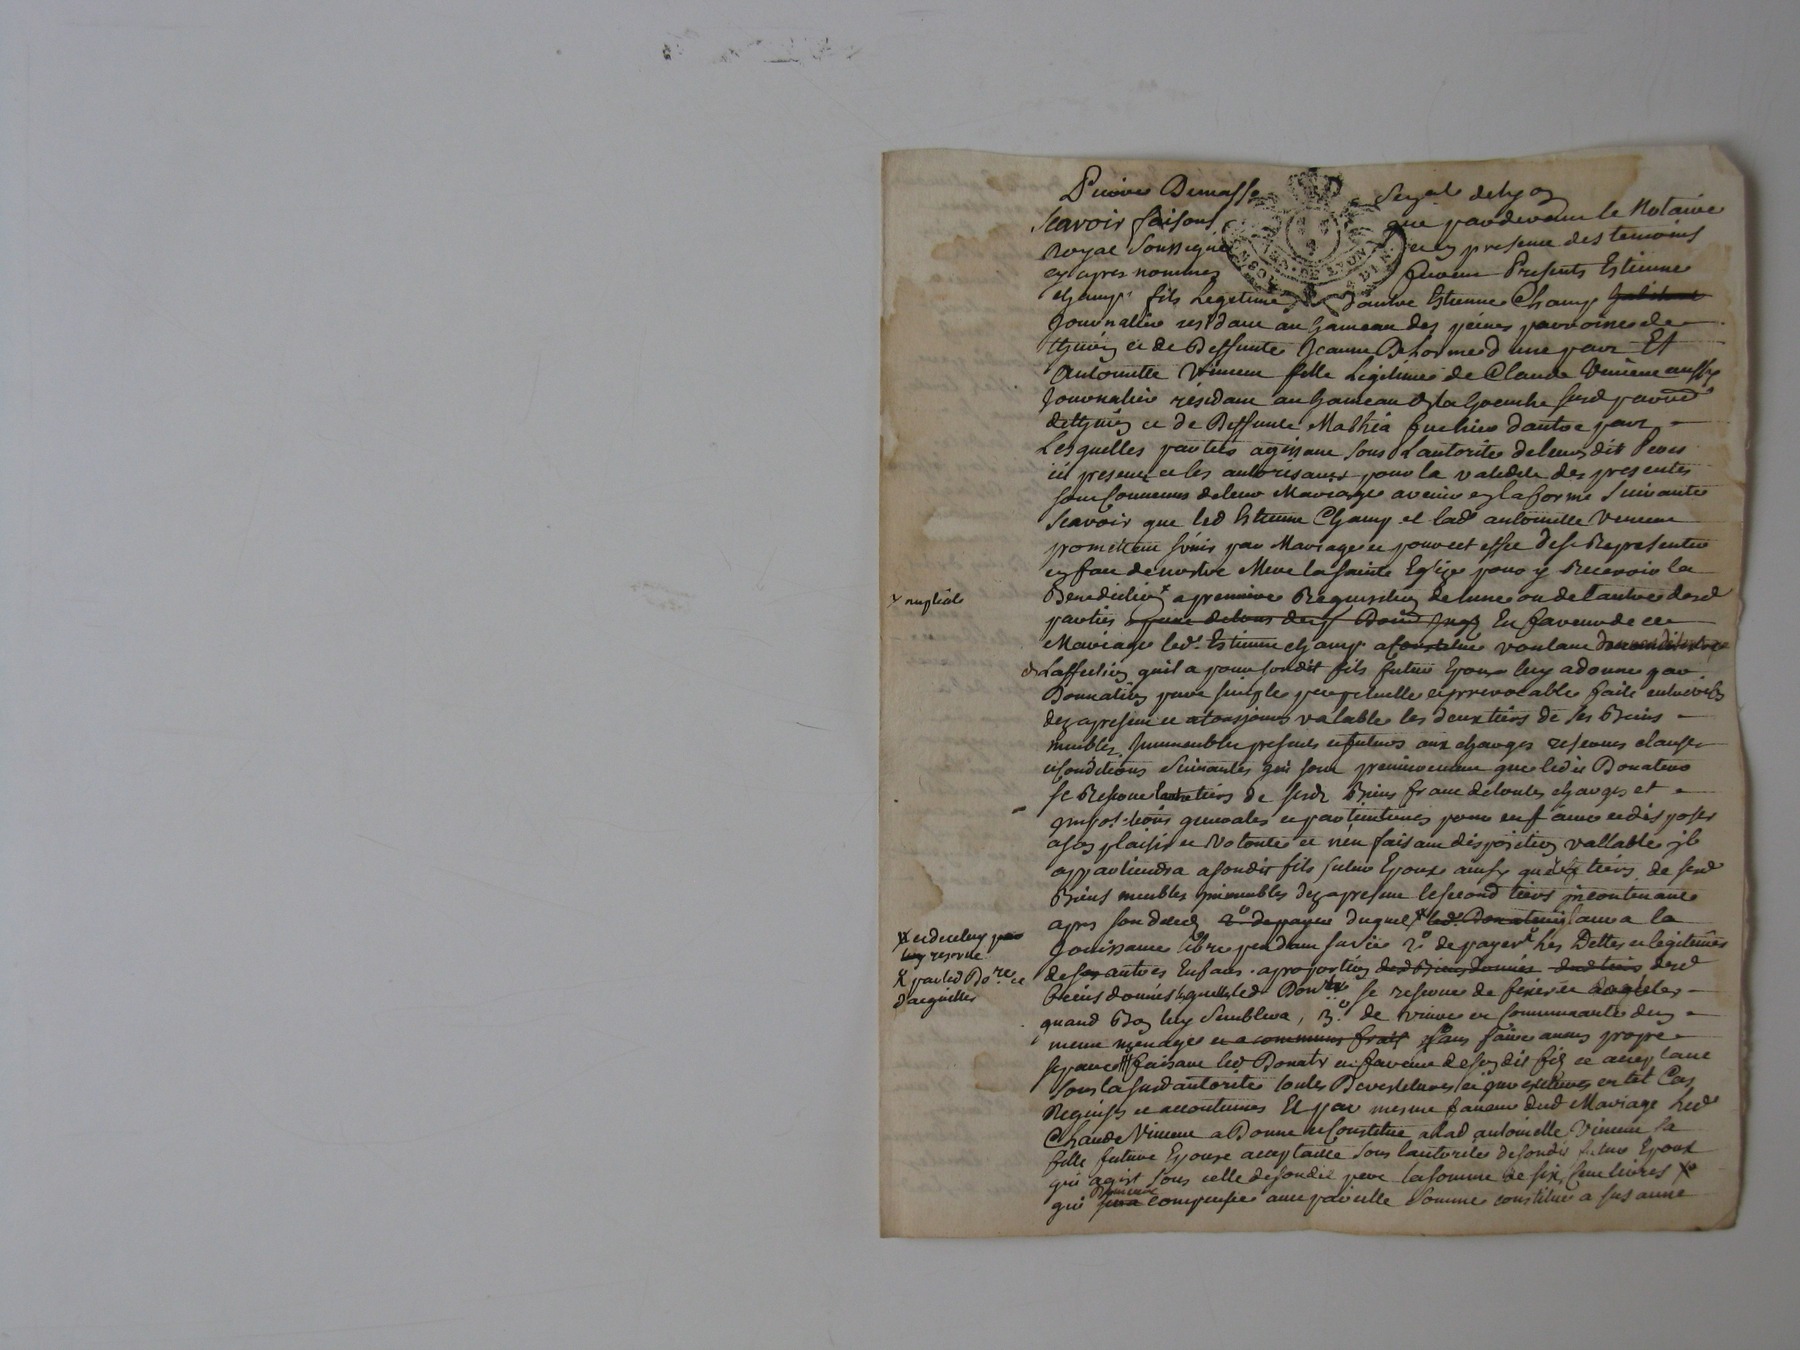 Scavoir faisons que pardevant le Notaire
Royal Soussigné et en presence des temoins
cy apres nommes furent Presents Estienne
Champ fils Legitime d'autre Estienne Champ habitant
Journalier residant au hameau des parroisse de
et de Deffunte Jeanne Delorme d'une part Et
Antoinette Vincent fille Legitime de Claude Vincent aussy
Journalier résidant au hameau de la susd parroisse
et de Deffunte Mathia d'autre part
Lesquelles parties agissant sous L'autorité de leurs dit Peres
ici present et les autorisants pour la validité des presentes
sont convenus de leur Mariage avenir en la forme Suivante
Scavoir que led Estienne Champ et lad antoinette Vincent
promettent s'unir par Mariage et pour cet effet de se Representer
en face de nostre Mere la Sainte Eglise pour y Recevoir la
x nuptiale
Benediction x a premiere Requisition de l'une ou de l'autre desd
parties En faveur de ce
Mariage led Estienne champ a constitué voulant
L'affection qu'il a pour sondit fils futur Epoux luy a donné par
Donnation pure simple perpetuelle et irrevocable faite entre vifs
dez apresent et a tousjours valable les deux tiers de ses Biens
meubles Immeubles presents et futurs aux charges reserves clauses
et Conditions Suivantes qui sont premierement que ledit Donateur
se Reserve tiers de sesd Biens franc de toutes charges et
impositions generales et particulieres pour en faire et disposer
a son plaisir et Volonté et n'en faisant disposition vallable il
appartiendra a sondit fils futur Epoux ainsy que tiers de sesd
Biens meubles immeubles dez apresent le second tiers incontinant
apres son deced 2° de payer duquel x led Donateur aura la
x et de celuy
reservé
Jouissance libre pendant sa vie 2° de payer x Les Dettes et legitimes
x par led Do.re et
d'acquitter
de ses autres Enfans a proportion desd Biens donnés desd
biens donnés lesquelles led Don.r se reserve de fixer et
quand Bon luy Semblera, 3° de vivre en Communauté dun
meme menage et a communs frais sans faire aucun propre
separé faisant led Donat.r en faveur de son dit fils ce acceptant
sous la susd autorité toutes Devestitures et investitures en tel Cas
Requises et accoutumées Et par mesme faveur dud Mariage led
Claude Vincent a Donné et Constitué a lad antoinette Vincent sa
fille future Epouse acceptante sous l'autorité de sondit futur Epoux
qui agist sous celle de sondit pere la somme de six Cent livres x
qui Demeure sera compensée avec pareille somme constituée a Susanne